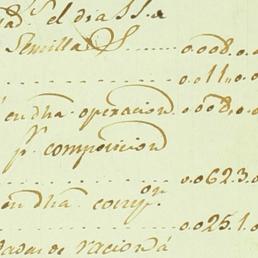 el dia
Semillas ...... 0.008.0
...... 0.011..0
en dha operacion. 0.008.0
pr composicion
...... 0.0623.0
en dha compon
...... 0.0251.0
de raciona